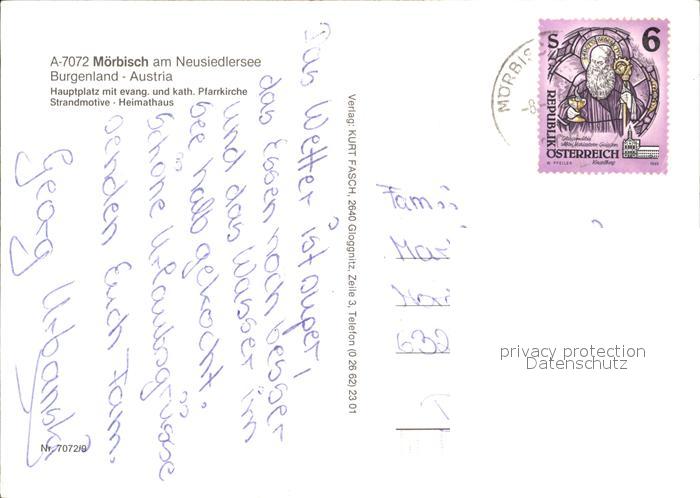 A-7072 Mörbisch am Neusiedlersee
Burgenland - Austria
Hauptplatz mit evang. und kath. Pfarrkirche
Strandmotive · Heimathaus
Das Wetter ist super!
das Essen noch besser
und das Wasser im
See halb gekocht.
Schöne Urlaubsgrüsse
senden Euch Fam.
Georg Urbanski
Nr. 7072/9
Verlag: KURT FASCH, 2640 Gloggnitz, Zeile 3, Telefon (0 26 62) 23 01
MÖRBIS
S 6
REPUBLIK
ÖSTERREICH
Fam
Mar
632
privacy protection
Datenschutz